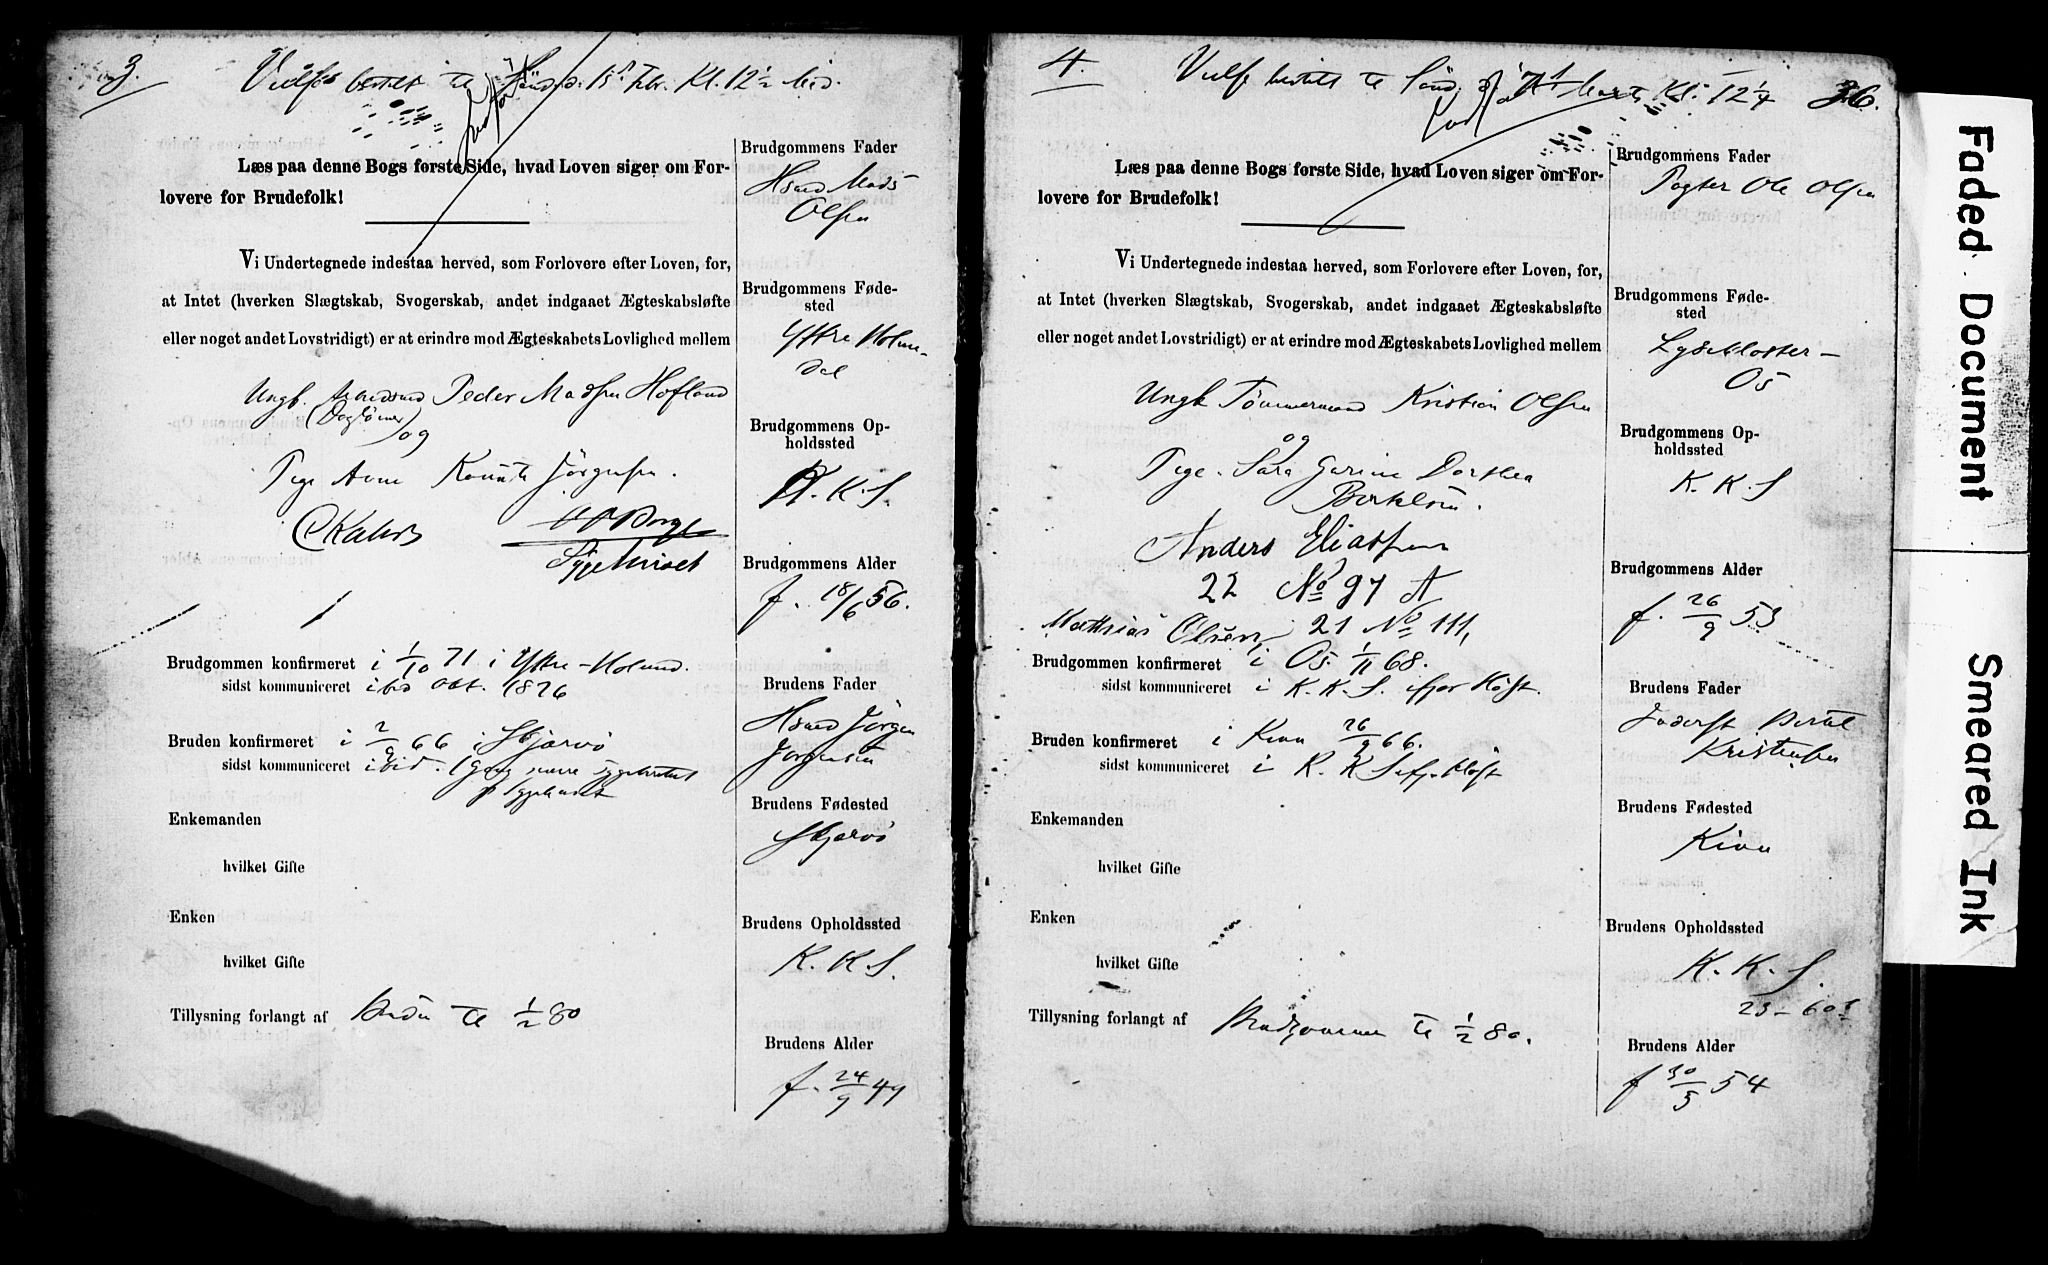 3.
bestilt til Kl. 12½ Mid.
Læs paa denne Bogs første Side, hvad Loven siger om For-
lovere for Brudefolk!
Vi Undertegnede indestaa herved, som Forlovere efter Loven, for,
at Intet (hverken Slægtskab, Svogerskab, andet indgaaet Ægteskabsløfte
eller noget andet Lovstridigt) er at erindre mod Ægteskabets Lovlighed mellem
Ungk. Peder Madsen Hofland
og
Pige Jørgensen.
Sygehuset
Brudgommen konfirmeret i 1/10 71 i Ytre-Holmed.
sidst kommuniceret ibid Okt. 1876
Bruden konfirmeret i 2/9 66 i Skjærvø
sidst kommuniceret ibid.
Enkemanden
hvilket Gifte
Enken
hvilket Gifte
Tillysning forlangt af til 1/2 80
Brudgommens Fader
Hsmd Mads
Olsen
Brudgommens Føde-
sted
Ytre Holme-
dal
Brudgommens Op-
holdssted
K. K. S.
Brudgommens Alder
f. 18/6 56.
Brudens Fader
Hsmd Jørgen
Jørgensen
Brudens Fødested
Skjærvø
Brudens Opholdssted
K. K. S.
Brudens Alder
f. 24/9 49
4.
til Kl. 12¼ 36.
Læs paa denne Bogs første Side, hvad Loven siger om For-
lovere for Brudefolk!
Vi Undertegnede indestaa herved, som Forlovere efter Loven, for,
at Intet (hverken Slægtskab, Svogerskab, andet indgaaet Ægteskabsløfte
eller noget andet Lovstridigt) er at erindre mod Ægteskabets Lovlighed mellem
Ungk Tömmermand Kristian Olsen
og
Pige Sara Gurine Dorthea
Anders Eliassen
22 No 97 A
Mathias Olsen, 21 No 111,
Brudgommen konfirmeret i Os. 1/11 68.
sidst kommuniceret i K. K. S. ifjor Høst.
Bruden konfirmeret i Kinn 26/9 66.
sidst kommuniceret i K. K S ifj. Høst
Enkemanden
hvilket Gifte
Enken
hvilket Gifte
Tillysning forlangt af Brudgommen til 1/2 80.
Brudgommens Fader
Ole Olsen
Brudgommens Føde-
sted
Lysekloster-
Os
Brudgommens Op-
holdssted
K. K. S
Brudgommens Alder
f. 26/9 53
Brudens Fader
Bertel
Kristensen
Brudens Fødested
Kinn
Brudens Opholdssted
K. K. S.
23-60
Brudens Alder
f 30/5 54
Faded Document
Smeared Ink